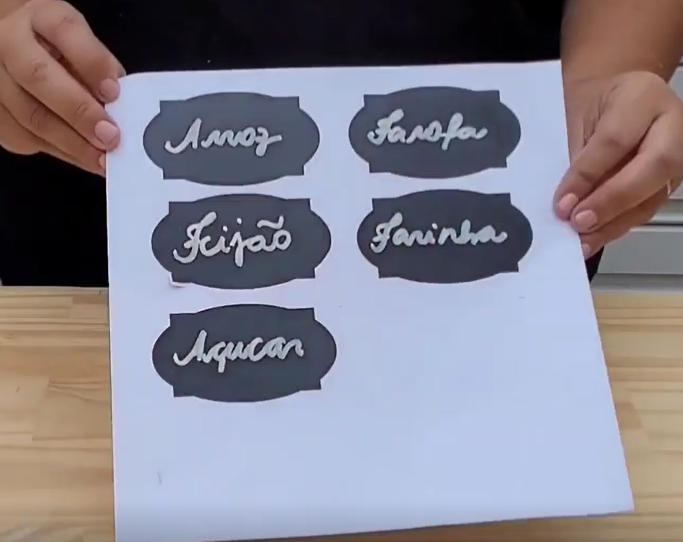 Arroz
Farofa
Feijão
Farinha
Açucar